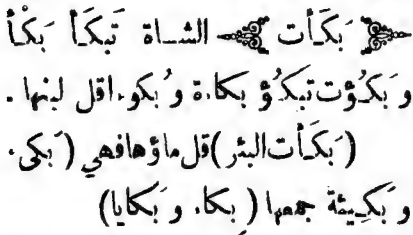 ﴿ بَكَأَت ﴾ الشاة تَبكَأ بَكْأ
وَبَكُؤت تبكُؤ بكاءة وبُكوء اقل لبنها .
(بَكَأَت البئر) قل ماؤها فهي (بَكىء
وبَكِيئة جمعها (بِكاء وبَكايا)